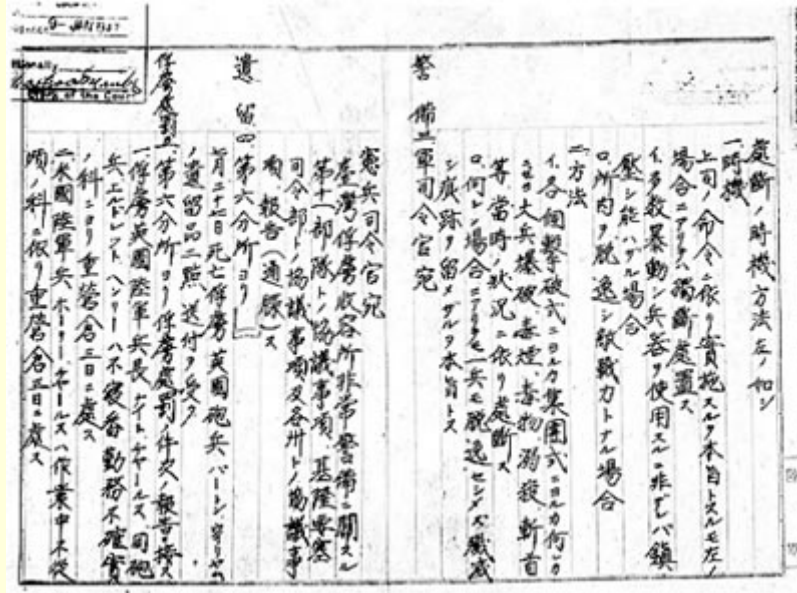 處斷ノ時機方法左ノ如シ
一、時機
上司ノ命令ニ依リ實施スルヲ本旨トスルモ左ノ
場合ニアリテハ獨斷處置ス
イ、多數暴動シ兵器ヲ使用スルニ非レバ鎮
壓シ能ハザル場合
ロ、所内ヲ脱逸シ敵戰力トナル場合
二、方法
イ、各個撃破式ニヨルカ集團式ニヨルカ何レカ
ニセヨ大兵爆破、毒煙、毒物、溺殺、斬首
等、當時ノ狀況ニ依リ處斷ス
ロ、何レノ場合ニアリテモ一兵モ脱逸セシメズ殲滅
シ痕跡ヲ留メザルヲ本旨トス
警備 三、軍司令官宛
憲兵司令官宛
臺灣俘虜收容所非常警備ニ關スル
第十一部隊トノ協議事項、基隆要塞
司令部トノ協議事項及各州トノ協議事
項、報告(通牒)ス
遺留 四、第六分所ヨリ
月二十七日死亡俘虜英國砲兵
ノ遺留品二點、送付ヲ受ク
俘虜處罰 五、第六分所ヨリ俘虜處罰ノ件次ノ報告ニ接ス
一、俘虜英國陸軍兵長 ナイト、チャールス、同砲
兵 ヘンリーハ不寢番勤務不確實
ノ科ニヨリ重營倉三日ニ處ス
二、米國陸軍兵 ホーター、チャールスハ作業中不從
順ノ科ニ依リ重營倉三日ニ處ス
of the Court